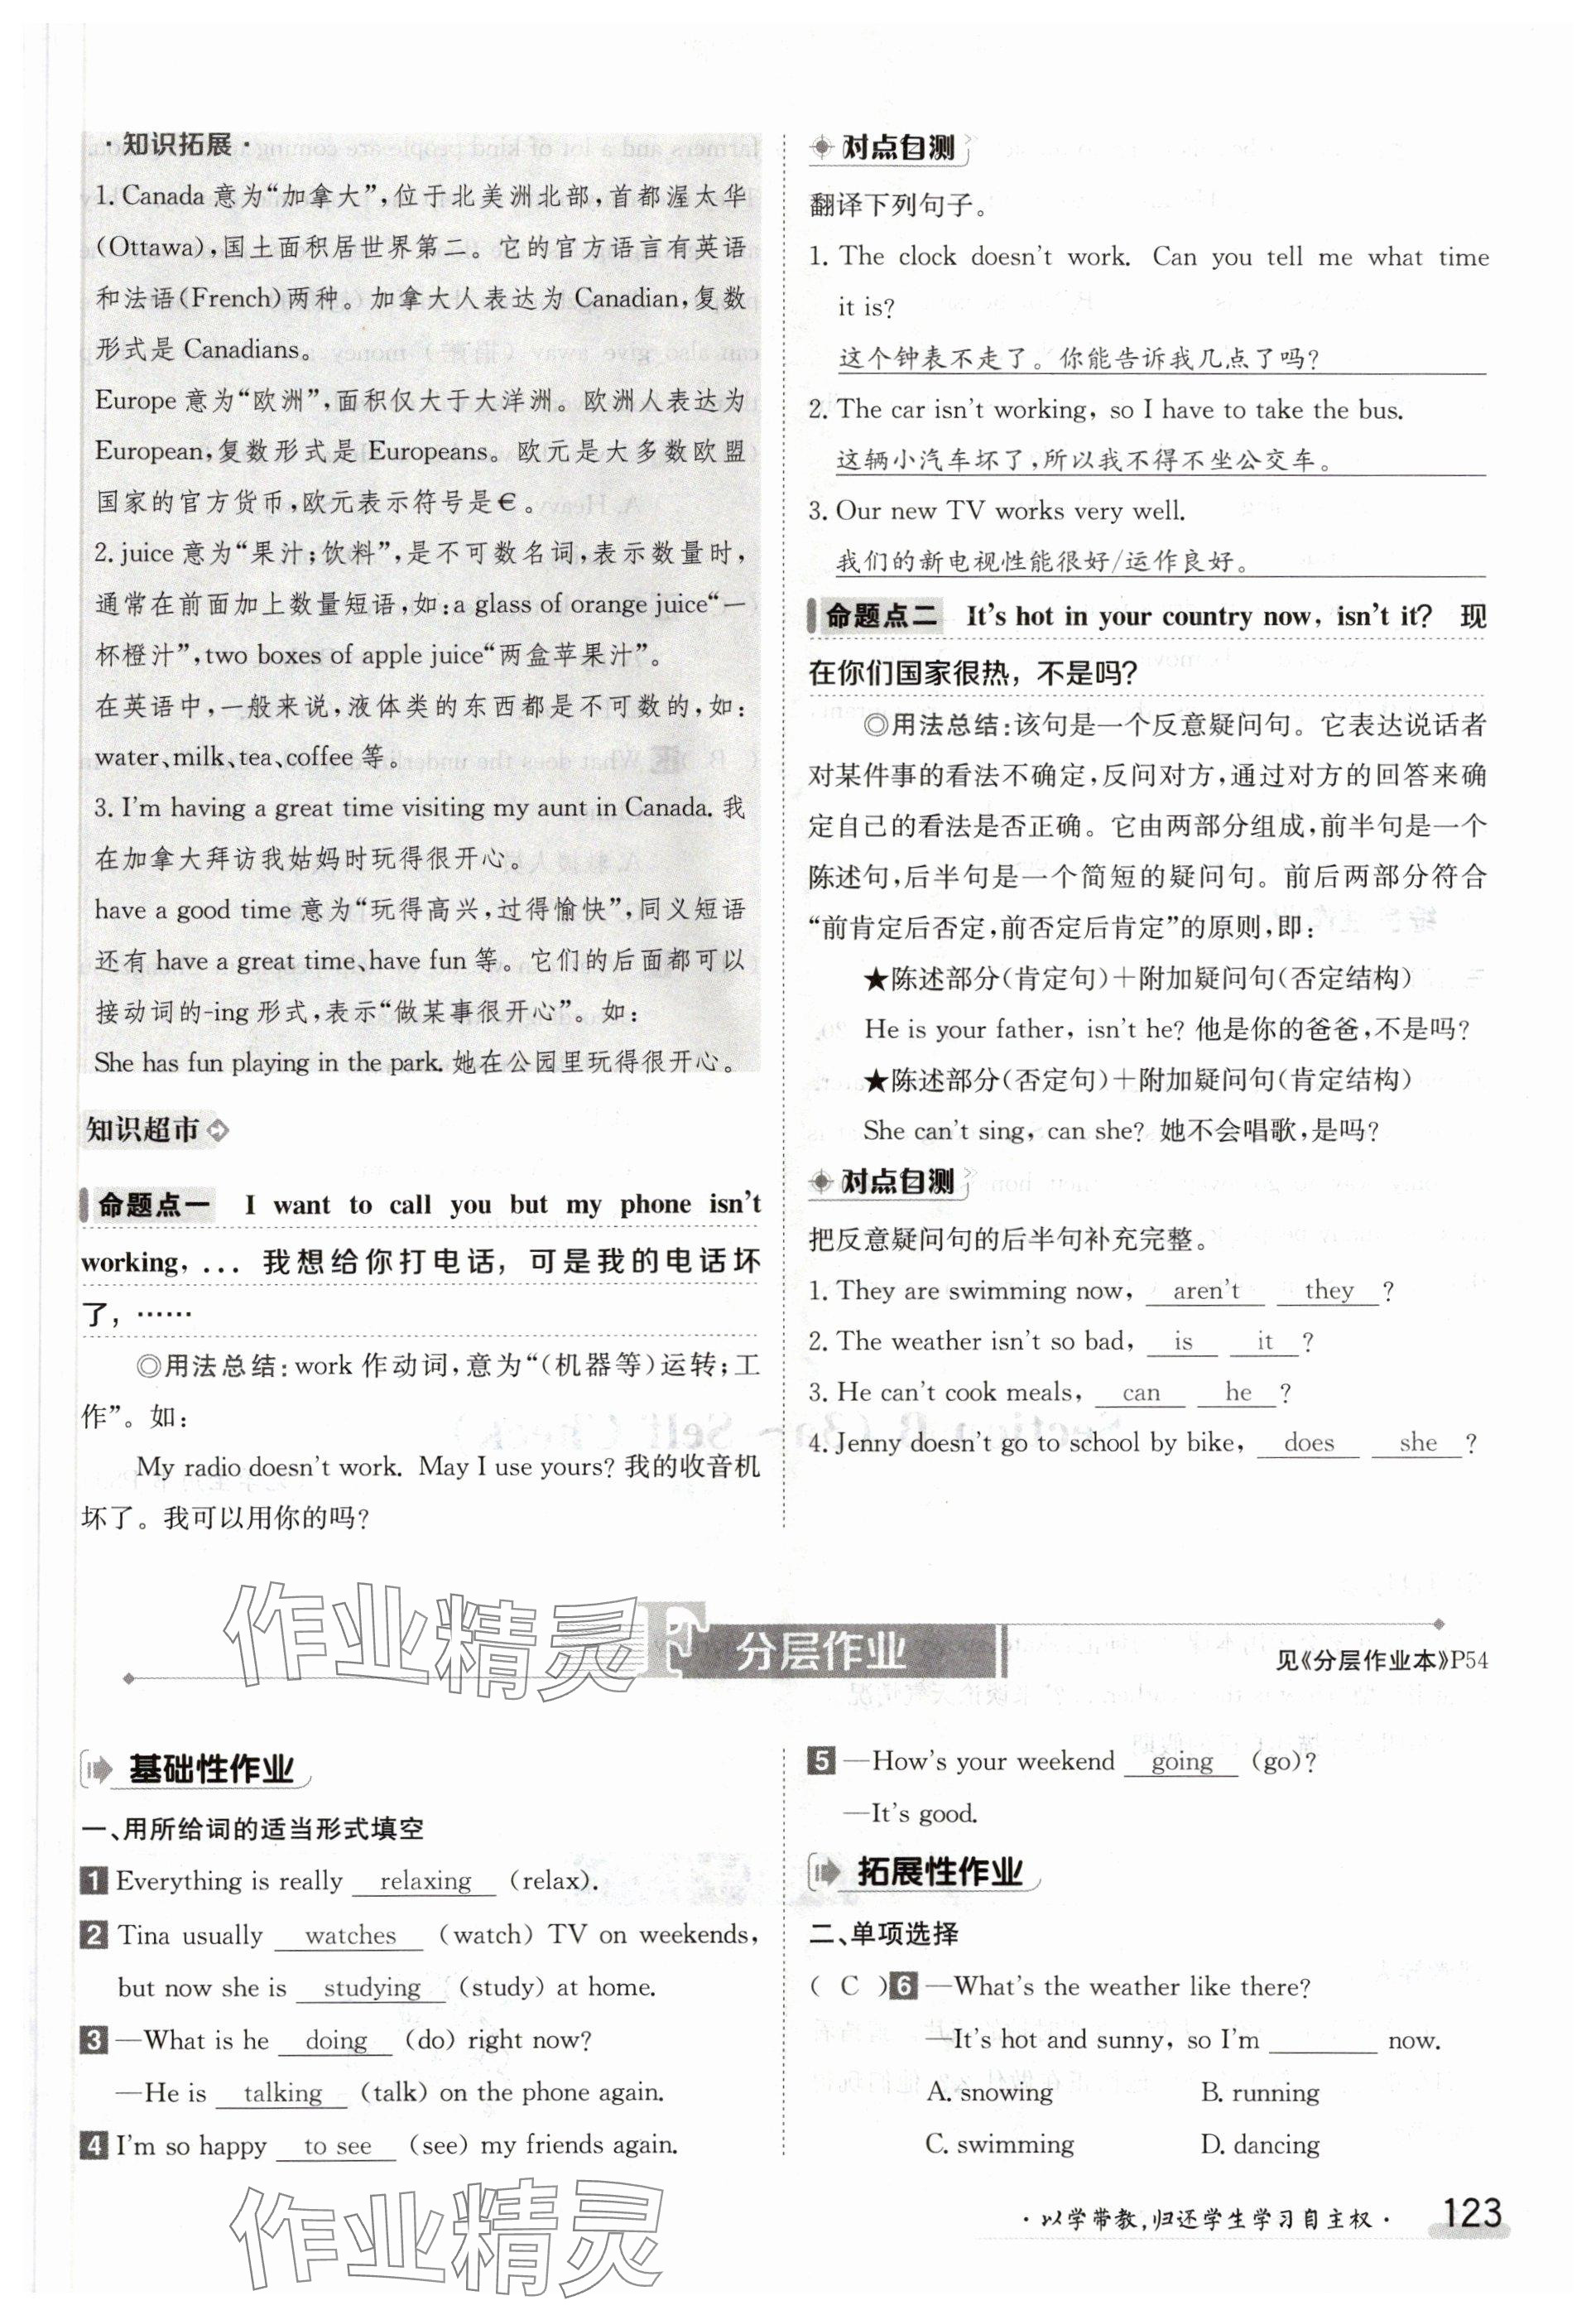 ·知识拓展·
1. Canada 意为“加拿大”,位于北美洲北部,首都渥太华
(Ottawa),国土面积居世界第二。它的官方语言有英语
和法语(French)两种。加拿大人表达为 Canadian,复数
形式是 Canadians。
Europe 意为“欧洲”,面积仅大于大洋洲。欧洲人表达为
European,复数形式是 Europeans。欧元是大多数欧盟
国家的官方货币,欧元表示符号是€。
2. juice 意为“果汁;饮料”,是不可数名词,表示数量时,
通常在前面加上数量短语,如:a glass of orange juice“一
杯橙汁”,two boxes of apple juice“两盒苹果汁”。
在英语中,一般来说,液体类的东西都是不可数的,如:
water、milk、tea、coffee 等。
3. I'm having a great time visiting my aunt in Canada. 我
在加拿大拜访我姑妈时玩得很开心。
have a good time 意为“玩得高兴,过得愉快”,同义短语
还有 have a great time、have fun 等。它们的后面都可以
接动词的-ing 形式,表示“做某事很开心”。如:
She has fun playing in the park. 她在公园里玩得很开心。
知识超市
命题点一 I want to call you but my phone isn't
working, ... 我想给你打电话,可是我的电话坏
了,……
◎用法总结:work 作动词,意为“(机器等)运转;工
作”。如:
My radio doesn't work. May I use yours? 我的收音机
坏了。我可以用你的吗?
对点自测
翻译下列句子。
1. The clock doesn't work. Can you tell me what time
it is?
这个钟表不走了。你能告诉我几点了吗?
2. The car isn't working, so I have to take the bus.
这辆小汽车坏了,所以我不得不坐公交车。
3. Our new TV works very well.
我们的新电视性能很好/运作良好。
命题点二 It's hot in your country now, isn't it? 现
在你们国家很热,不是吗?
◎用法总结:该句是一个反意疑问句。它表达说话者
对某件事的看法不确定,反问对方,通过对方的回答来确
定自己的看法是否正确。它由两部分组成,前半句是一个
陈述句,后半句是一个简短的疑问句。前后两部分符合
“前肯定后否定,前否定后肯定”的原则,即:
★陈述部分(肯定句)+附加疑问句(否定结构)
He is your father, isn't he? 他是你的爸爸,不是吗?
★陈述部分(否定句)+附加疑问句(肯定结构)
She can't sing, can she? 她不会唱歌,是吗?
对点自测
把反意疑问句的后半句补充完整。
1. They are swimming now, aren't they ?
2. The weather isn't so bad, is it ?
3. He can't cook meals, can he ?
4. Jenny doesn't go to school by bike, does she ?
作业精灵
分层作业
见《分层作业本》P54
基础性作业
一、用所给词的适当形式填空
1 Everything is really relaxing (relax).
2 Tina usually watches (watch) TV on weekends,
but now she is studying (study) at home.
3 —What is he doing (do) right now?
—He is talking (talk) on the phone again.
4 I'm so happy to see (see) my friends again.
5 —How's your weekend going (go)?
—It's good.
拓展性作业
二、单项选择
( C )6 —What's the weather like there?
—It's hot and sunny, so I'm ________ now.
A. snowing B. running
C. swimming D. dancing
作业精灵
·以学带教,归还学生学习自主权· 123